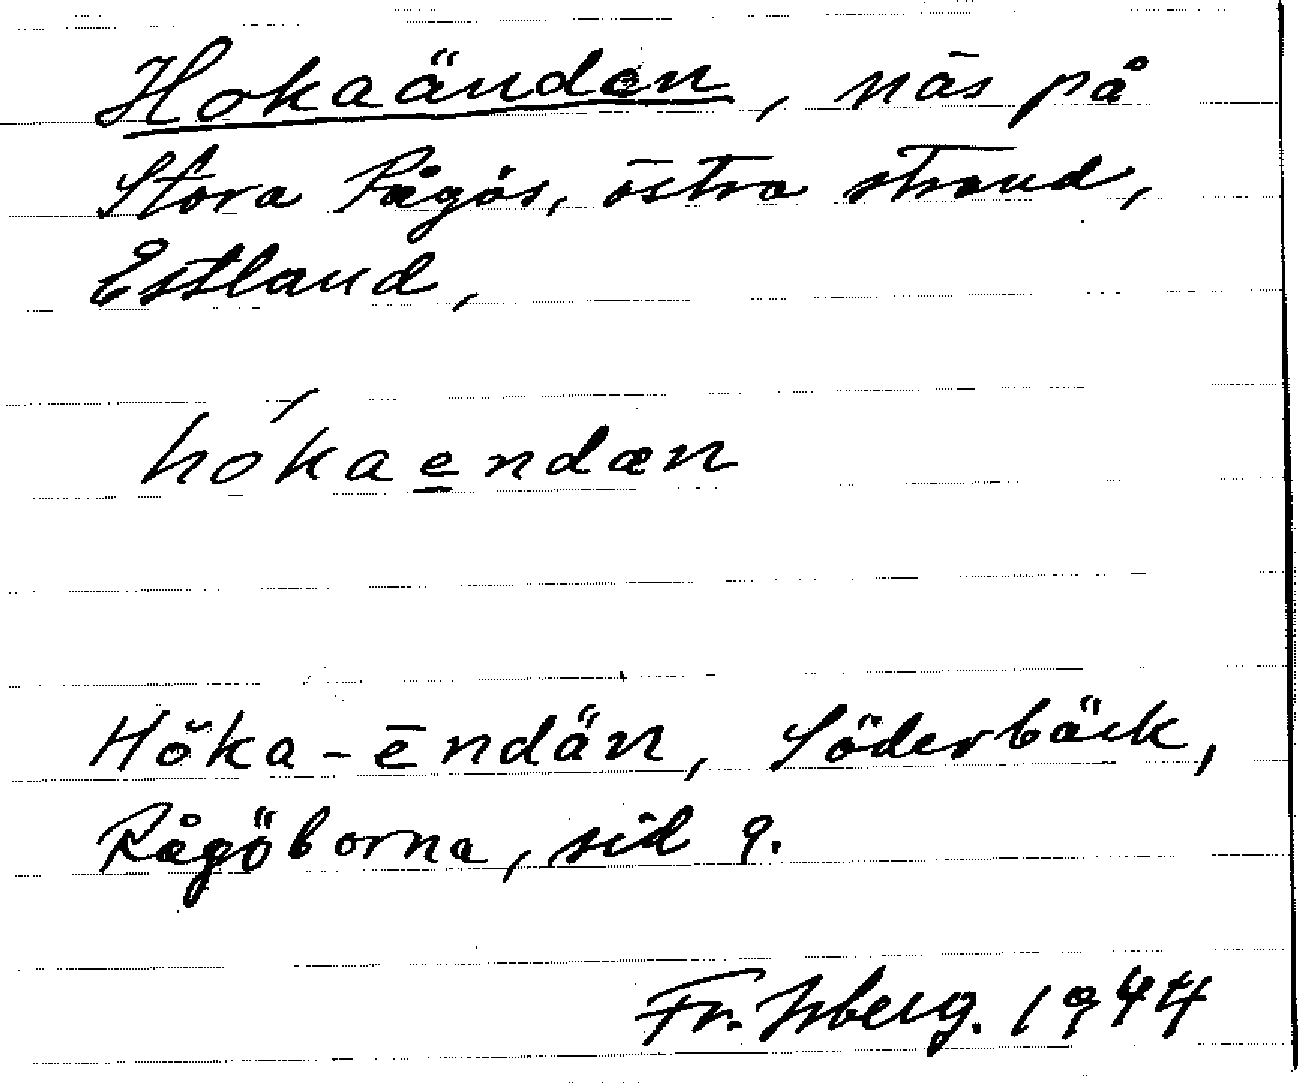 Hokaänden, näs på
Stora Rågös, östra strand,
Estland,
hókaendæn
Hŏka-ēndän, Söderbäck,
Rågöborna, sid 9.
Fr. Isberg. 1944